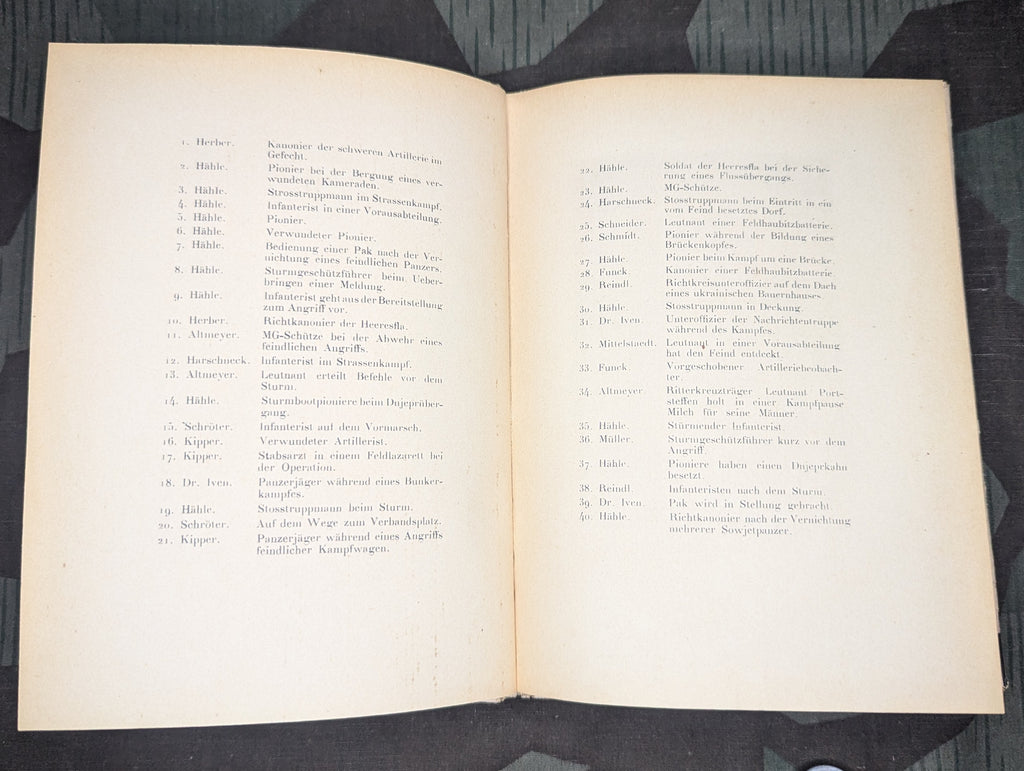 1. Herber. Kanonier der schweren Artillerie im
Gefecht.
2. Hähle. Pionier bei der Bergung eines ver-
wundeten Kameraden.
3. Hähle. Strosstruppmann im Strassenkampf.
4. Hähle. Infanterist in einer Vorausabteilung.
5. Hähle. Pionier.
6. Hähle. Verwundeter Pionier.
7. Hähle. Bedienung einer Pak nach der Ver-
nichtung eines feindlichen Panzers.
8. Hähle. Sturmgeschützführer beim Ueber-
bringen einer Meldung.
9. Hähle. Infanterist geht aus der Bereitstellung
zum Angriff vor.
10. Herber. Richtkanonier der Heeresfla.
11. Altmeyer. MG-Schütze bei der Abwehr eines
feindlichen Angriffs.
12. Harschneck. Infanterist im Strassenkampf.
13. Altmeyer. Leutnant erteilt Befehle vor dem
Sturm.
14. Hähle. Sturmbootpioniere beim Dnjeprüber-
gang.
15. Schröter. Infanterist auf dem Vormarsch.
16. Kipper. Verwundeter Artillerist.
17. Kipper. Stabsarzt in einem Feldlazarett bei
der Operation.
18. Dr. Iven. Panzerjäger während eines Bunker-
kampfes.
19. Hähle. Stosstruppmann beim Sturm.
20. Schröter. Auf dem Wege zum Verbandsplatz.
21. Kipper. Panzerjäger während eines Angriffs
feindlicher Kampfwagen.
22. Hähle. Soldat der Heeresfla bei der Siche-
rung eines Flussübergangs.
23. Hähle. MG-Schütze.
24. Harschneck. Stosstruppmann beim Eintritt in ein
vom Feind besetztes Dorf.
25. Schneider. Leutnant einer Feldhaubitzbatterie.
26. Schmidt. Pionier während der Bildung eines
Brückenkopfes.
27. Hähle. Pionier beim Kampf um eine Brücke.
28. Funck. Kanonier einer Feldhaubitzbatterie.
29. Reindl. Richtkreisunteroffizier auf dem Dach
eines ukrainischen Bauernhauses
30. Hähle. Stosstruppmann in Deckung.
31. Dr. Iven. Unteroffizier der Nachrichtentruppe
während des Kampfes.
32. Mittelstaedt. Leutnant in einer Vorausabteilung
hat den Feind entdeckt.
33. Funck. Vorgeschobener Artilleriebeobach-
ter.
34. Altmeyer. Ritterkreuzträger Leutnant Port-
steffen holt in einer Kampfpause
Milch für seine Männer.
35. Hähle. Stürmender Infanterist.
36. Müller. Sturmgeschützführer kurz vor dem
Angriff.
37. Hähle. Pioniere haben einen Dnjeprkahn
besetzt.
38. Reindl. Infanteristen nach dem Sturm.
39. Dr. Iven. Pak wird in Stellung gebracht.
40. Hähle. Richtkanonier nach der Vernichtung
mehrerer Sowjetpanzer.